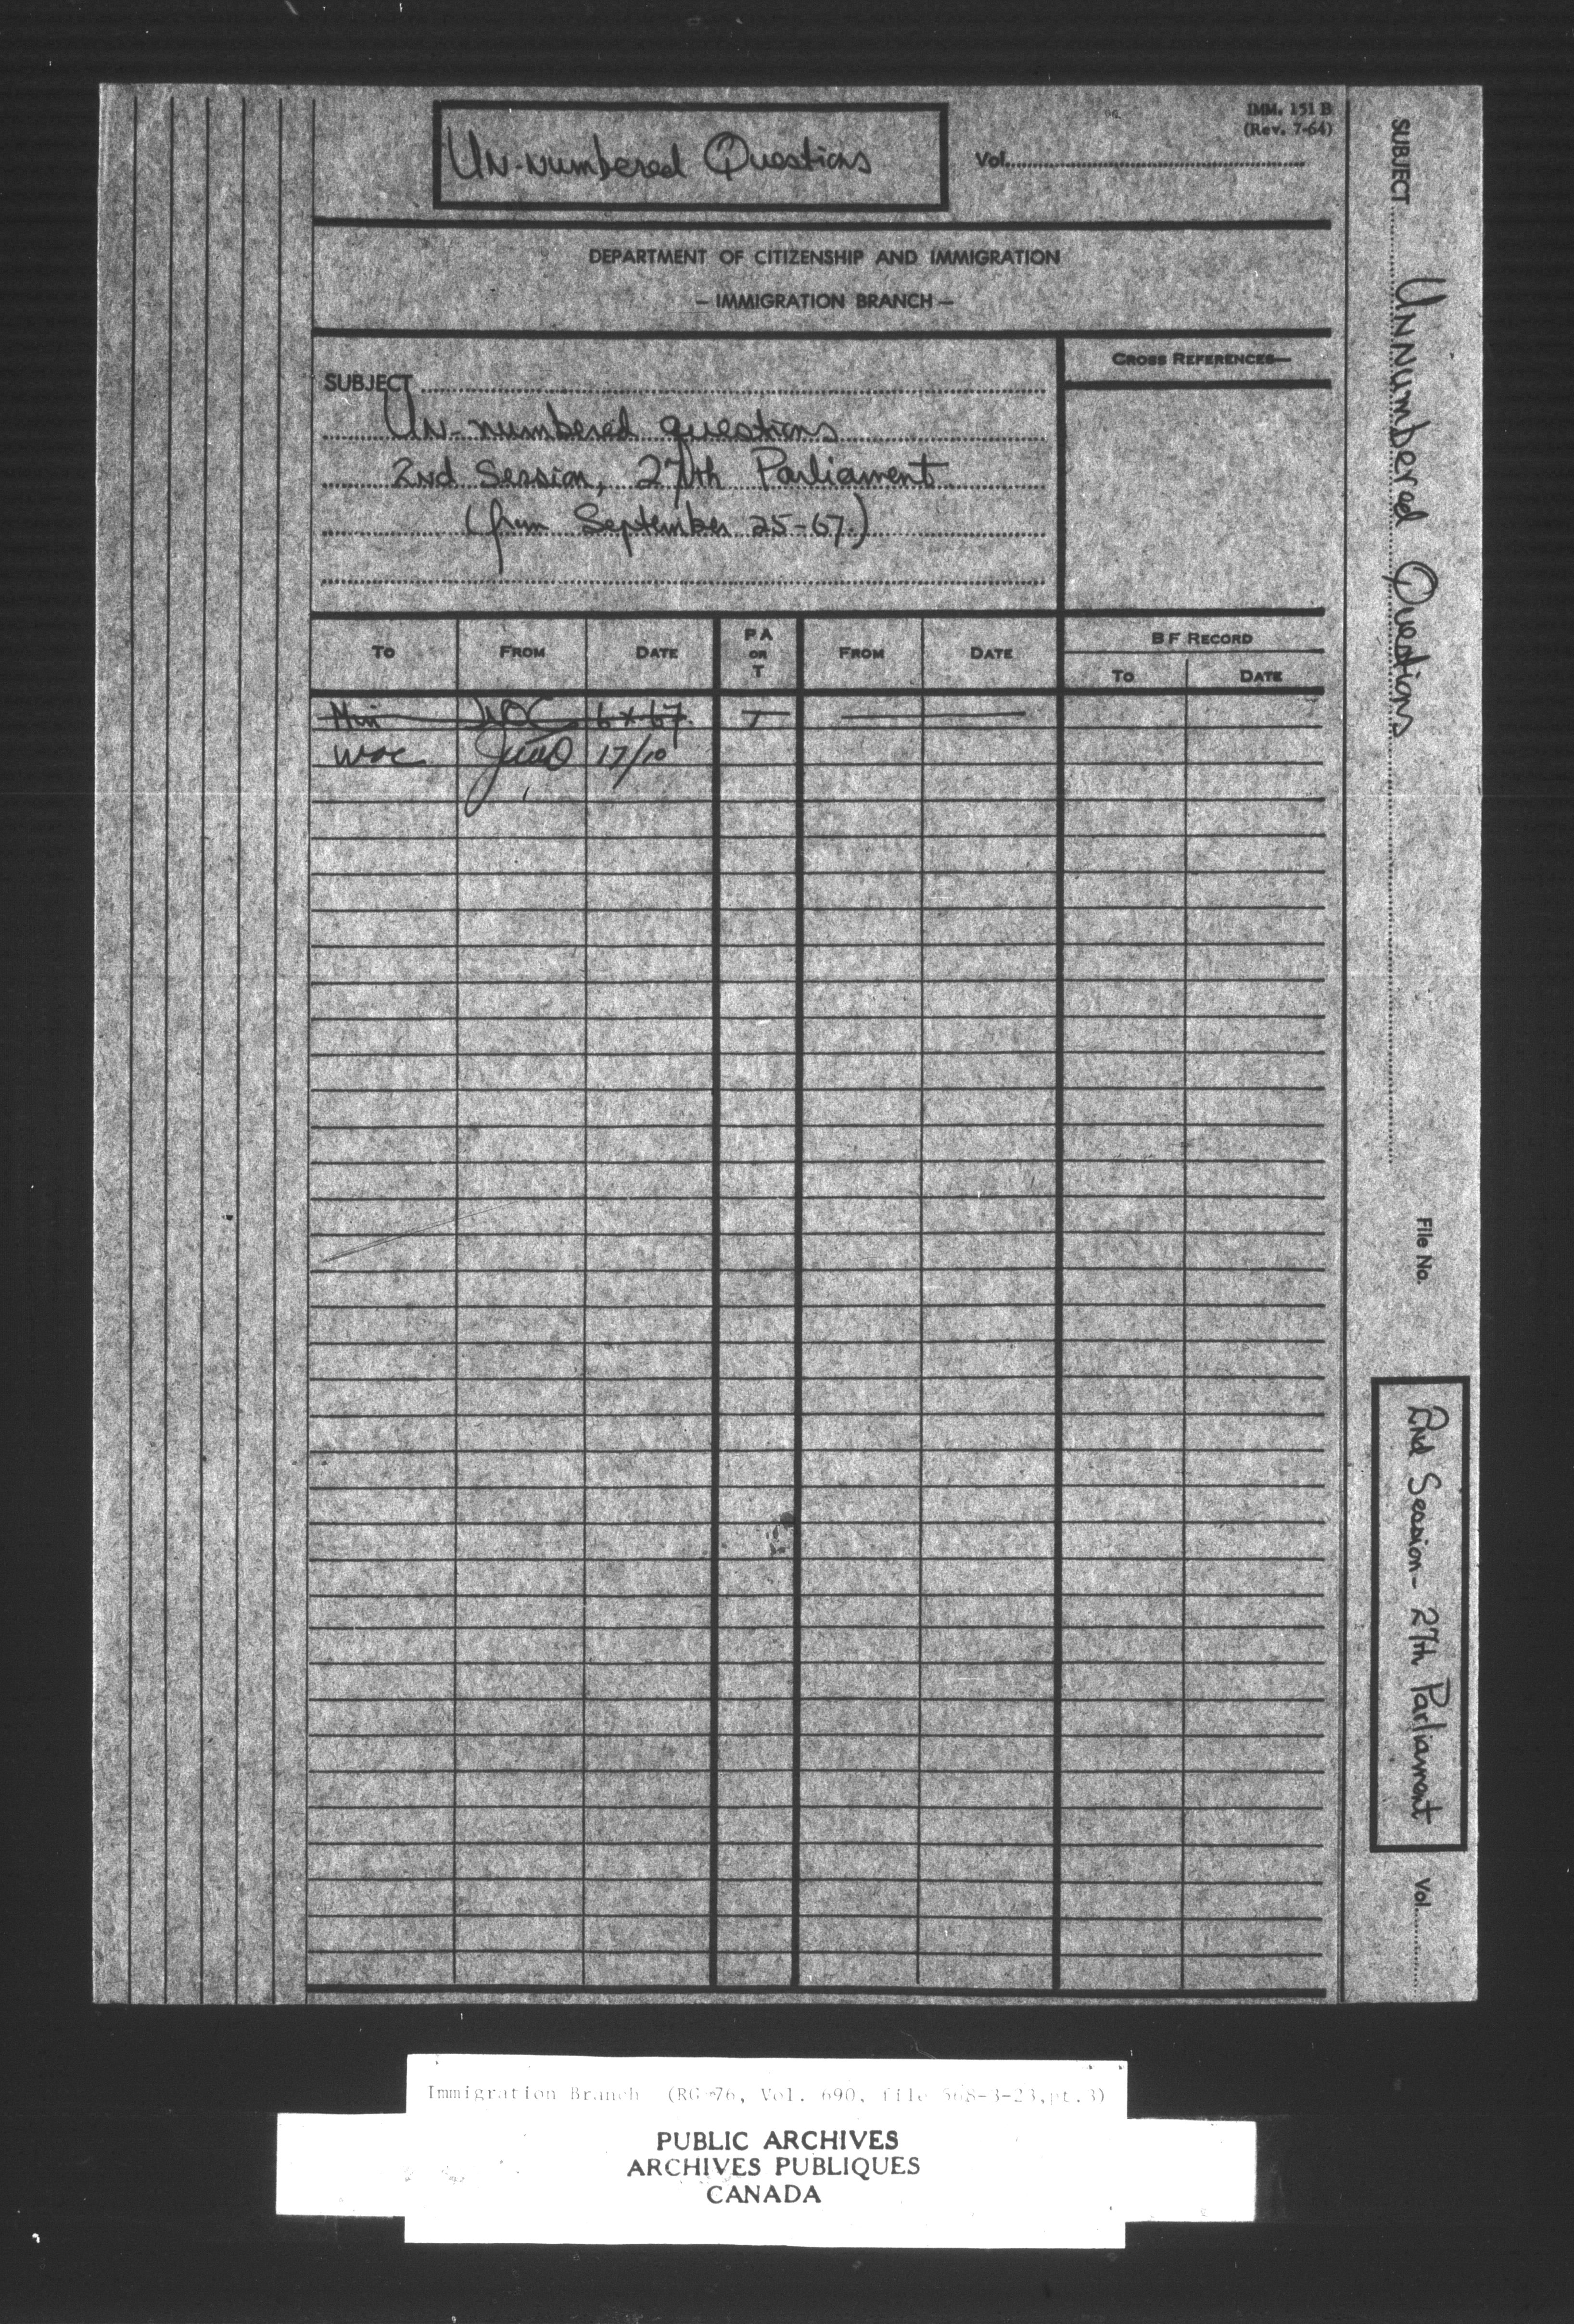 IMM. 151 B
(Rev. 7-64)
Un-numbered Questions
Vol.
DEPARTMENT OF CITIZENSHIP AND IMMIGRATION
– IMMIGRATION BRANCH –
CROSS REFERENCES—
SUBJECT
Un-numbered questions
2nd Session, 27th Parliament
(from September 25-67.)
TO FROM DATE P A OR T FROM DATE B F RECORD
TO DATE
Min WOC 6 X 67. T
WOC 17/10
SUBJECT Unnumbered Questions
File No.
2nd Session - 27th Parliament
Vol.
Immigration Branch (RG 76, Vol. 690, file 568-3-23, pt.3)
PUBLIC ARCHIVES
ARCHIVES PUBLIQUES
CANADA